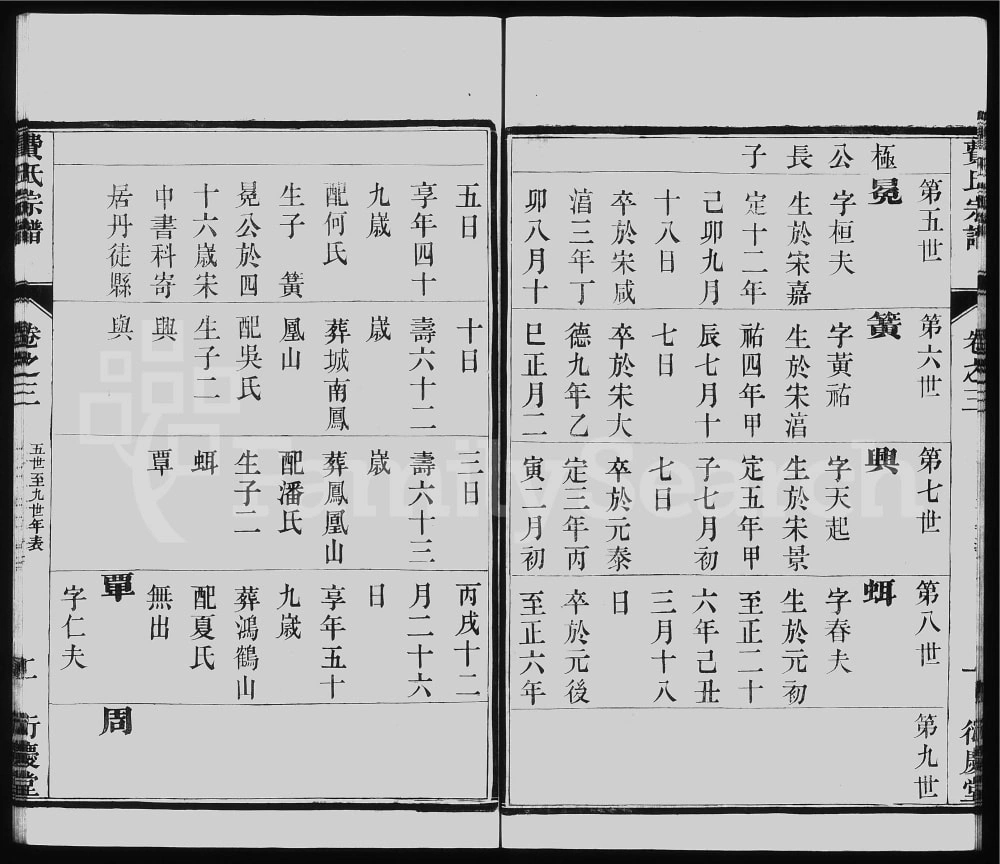 費氏宗譜
卷之三
一
衍慶堂
極
公
長
子
第五世
冕
字桓夫
生於宋嘉
定十二年
己卯九月
十八日
卒於宋咸
湻三年丁
卯八月十
五日
享年四十
九歲
配何氏
生子 簧
冕公於四
十六歲宋
中書科寄
居丹徒縣
第六世
簧
字黃祐
生於宋湻
祐四年甲
辰七月十
七日
卒於宋大
德九年乙
巳正月二
十日
壽六十二
歲
葬城南鳳
凰山
配吳氏
生子二
興
與
第七世
興
字天起
生於宋景
定五年甲
子七月初
七日
卒於元泰
定三年丙
寅二月初
三日
壽六十三
歲
葬鳳凰山
配潘氏
生子二
覃
第八世
字春夫
生於元初
至正二十
六年己丑
三月十八
日
卒於元後
至正六年
丙戌十二
月二十六
日
享年五十
九歲
葬鴻鶴山
配夏氏
無出
覃
字仁夫
第九世
周
費氏宗譜
卷之三
五世至九世年表
衍慶堂